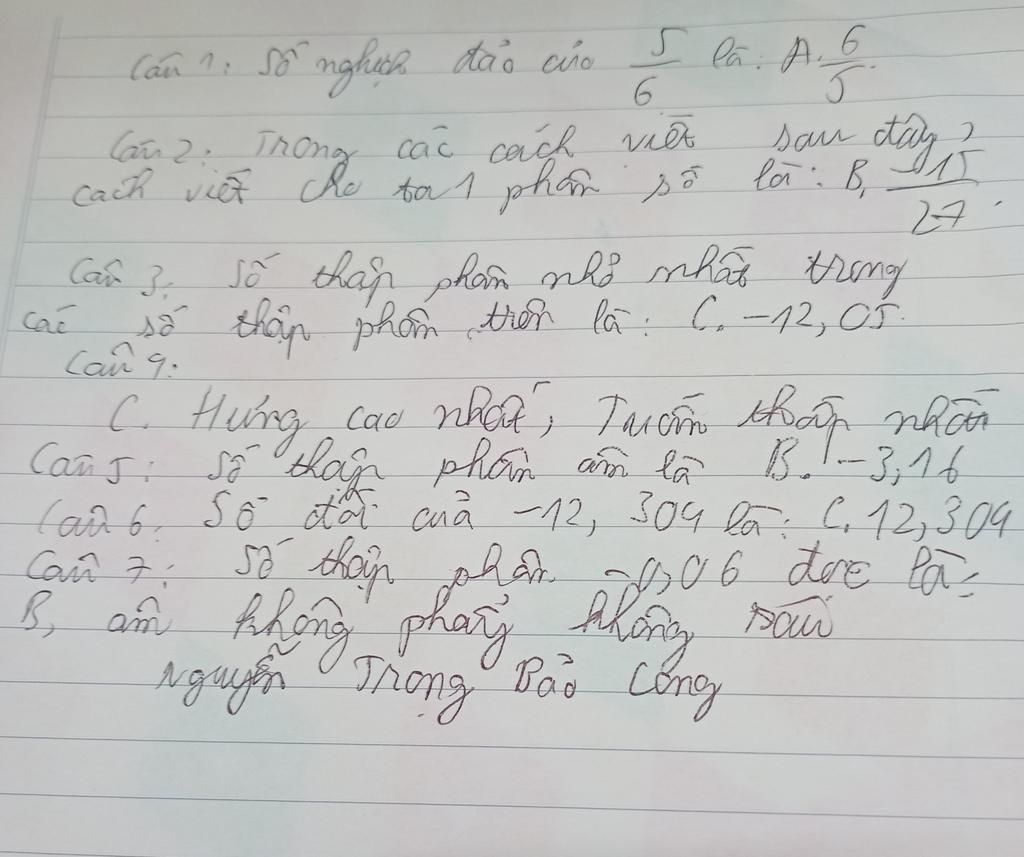 Câu 1: Số nghịch đảo của 5/6 là: A. 6/5.
Câu 2: Trong các cách viết sau đây,
cách viết cho ta 1 phân số là: B, -15/27.
Câu 3: Số thập phân nhỏ nhất trong
các số thập phân trên là: C. -12,05.
Câu 4:
C. Hưng cao nhất, Tuấn thấp nhất
Câu 5: Số thập phân âm là B. -3,16
Câu 6: Số đối của -12, 304 là: C. 12,304
Câu 7: Số thập phân -0,06 đọc là:
B, âm không phẩy không sáu
Nguyễn Trọng Bảo Công